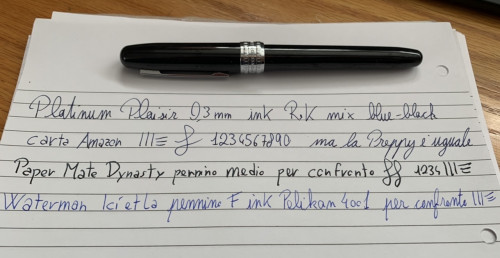 Platinum Plaisir 0,3 mm ink R.K mix blue-black
carta Amazon 1234567890 ma la Preppy è uguale
Paper Mate Dynasty pennino medio per confronto 1234
Waterman pennino F ink Pelikan 4001 per confronto